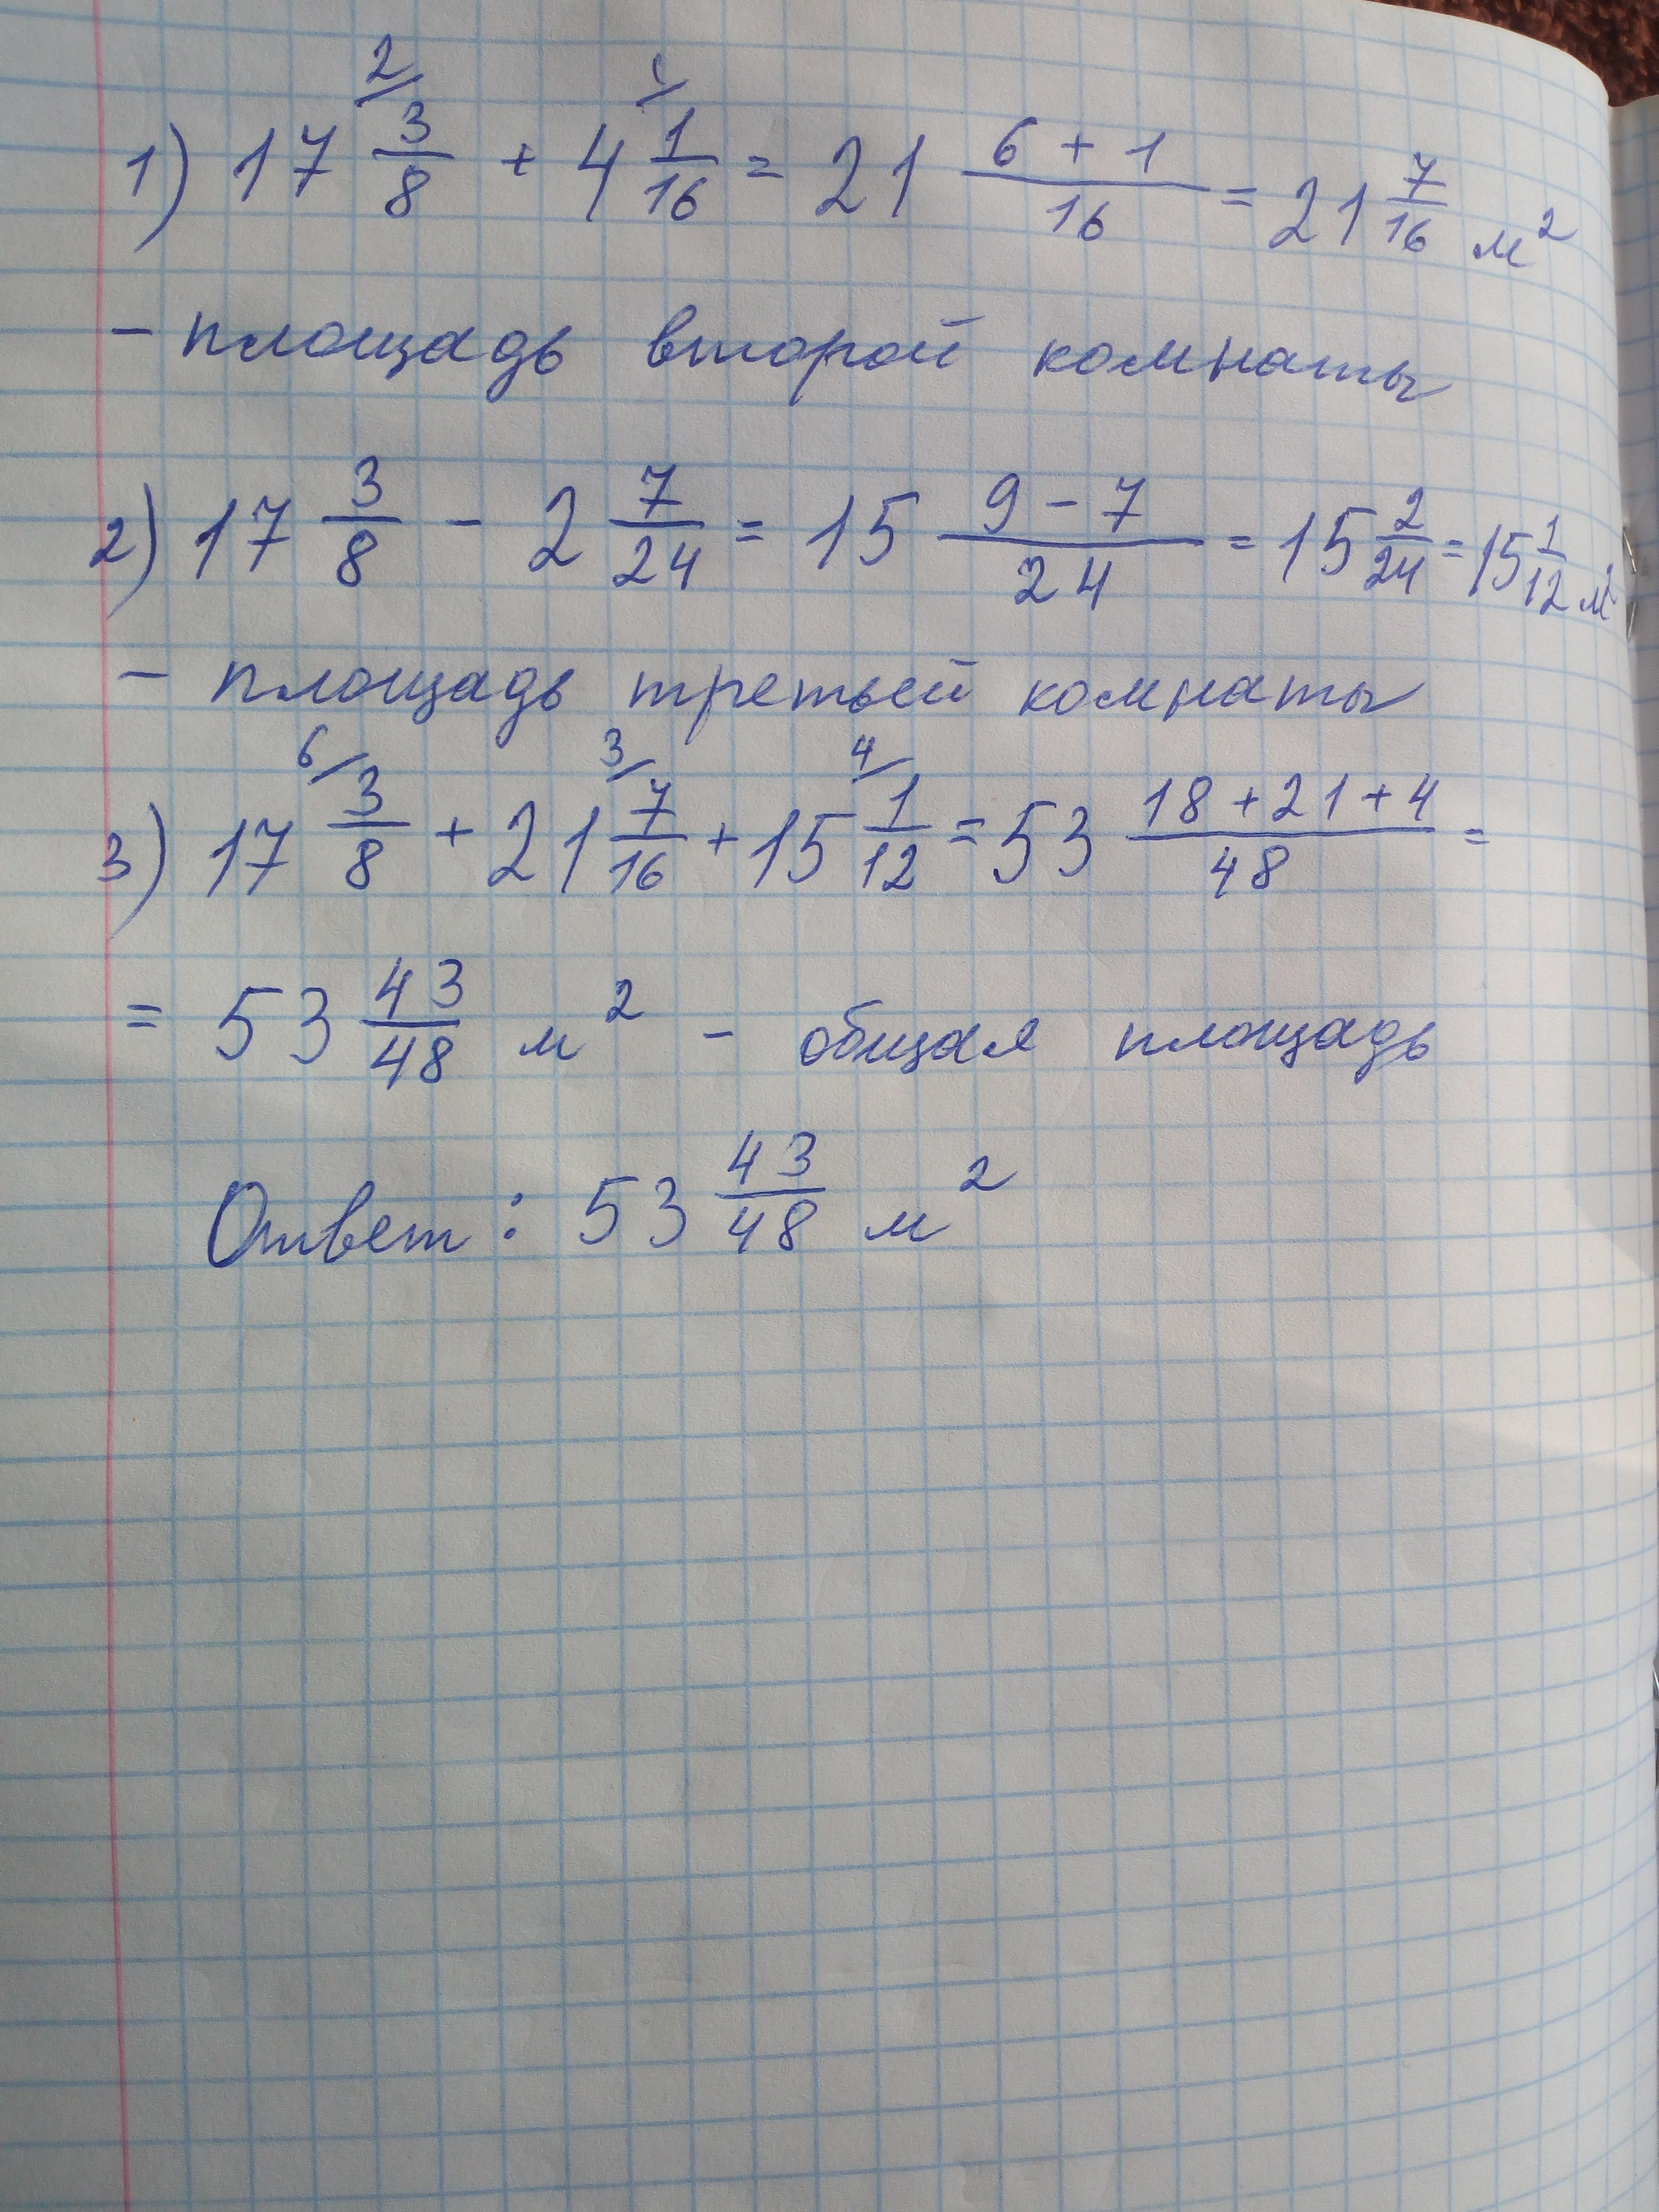 1) 17 2/ 3/8 + 4 1/ 1/16 = 21 (6 + 1)/16 = 21 7/16 м²
- площадь второй комнаты
2) 17 3/8 - 2 7/24 = 15 (9 - 7)/24 = 15 2/24 = 15 1/12 м²
- площадь третьей комнаты
3) 17 6/ 3/8 + 21 3/ 7/16 + 15 4/ 1/12 = 53 (18 + 21 + 4)/48 =
= 53 43/48 м² - общая площадь
Ответ: 53 43/48 м²